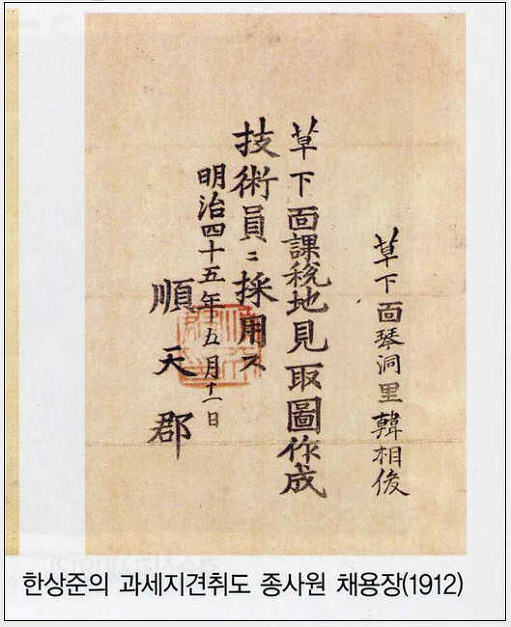 草下面琴洞里韓相俊
草下面課稅地見取圖作成
技術員ニ採用ス
明治四十五年五月十一日
順天郡
한상준의 과세지견취도 종사원 채용장(1912)